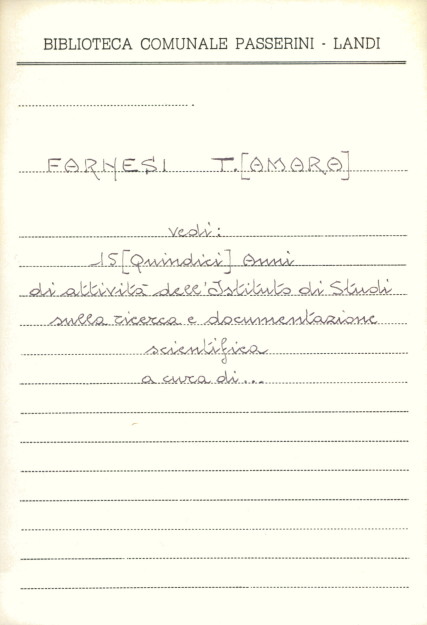 BIBLIOTECA COMUNALE PASSERINI - LANDI
FARNESI T.[AMARA]
vedi:
15[Quindici] Anni
di attività dell'Istituto di Studi
sulla ricerca e documentazione
scientifica
a cura di...